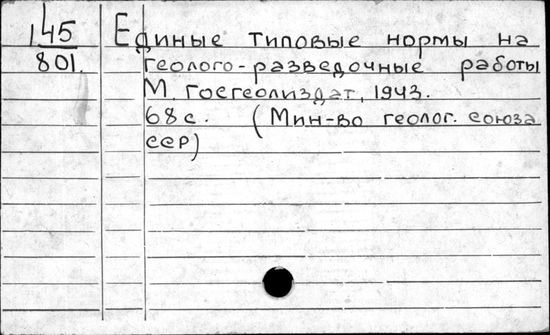 145
801.
Единые типовые нормы на
геолого-разведочные работы
М. Госгеолиздат, 1943.
68с. (Мин-во геолог. союза
ССР)